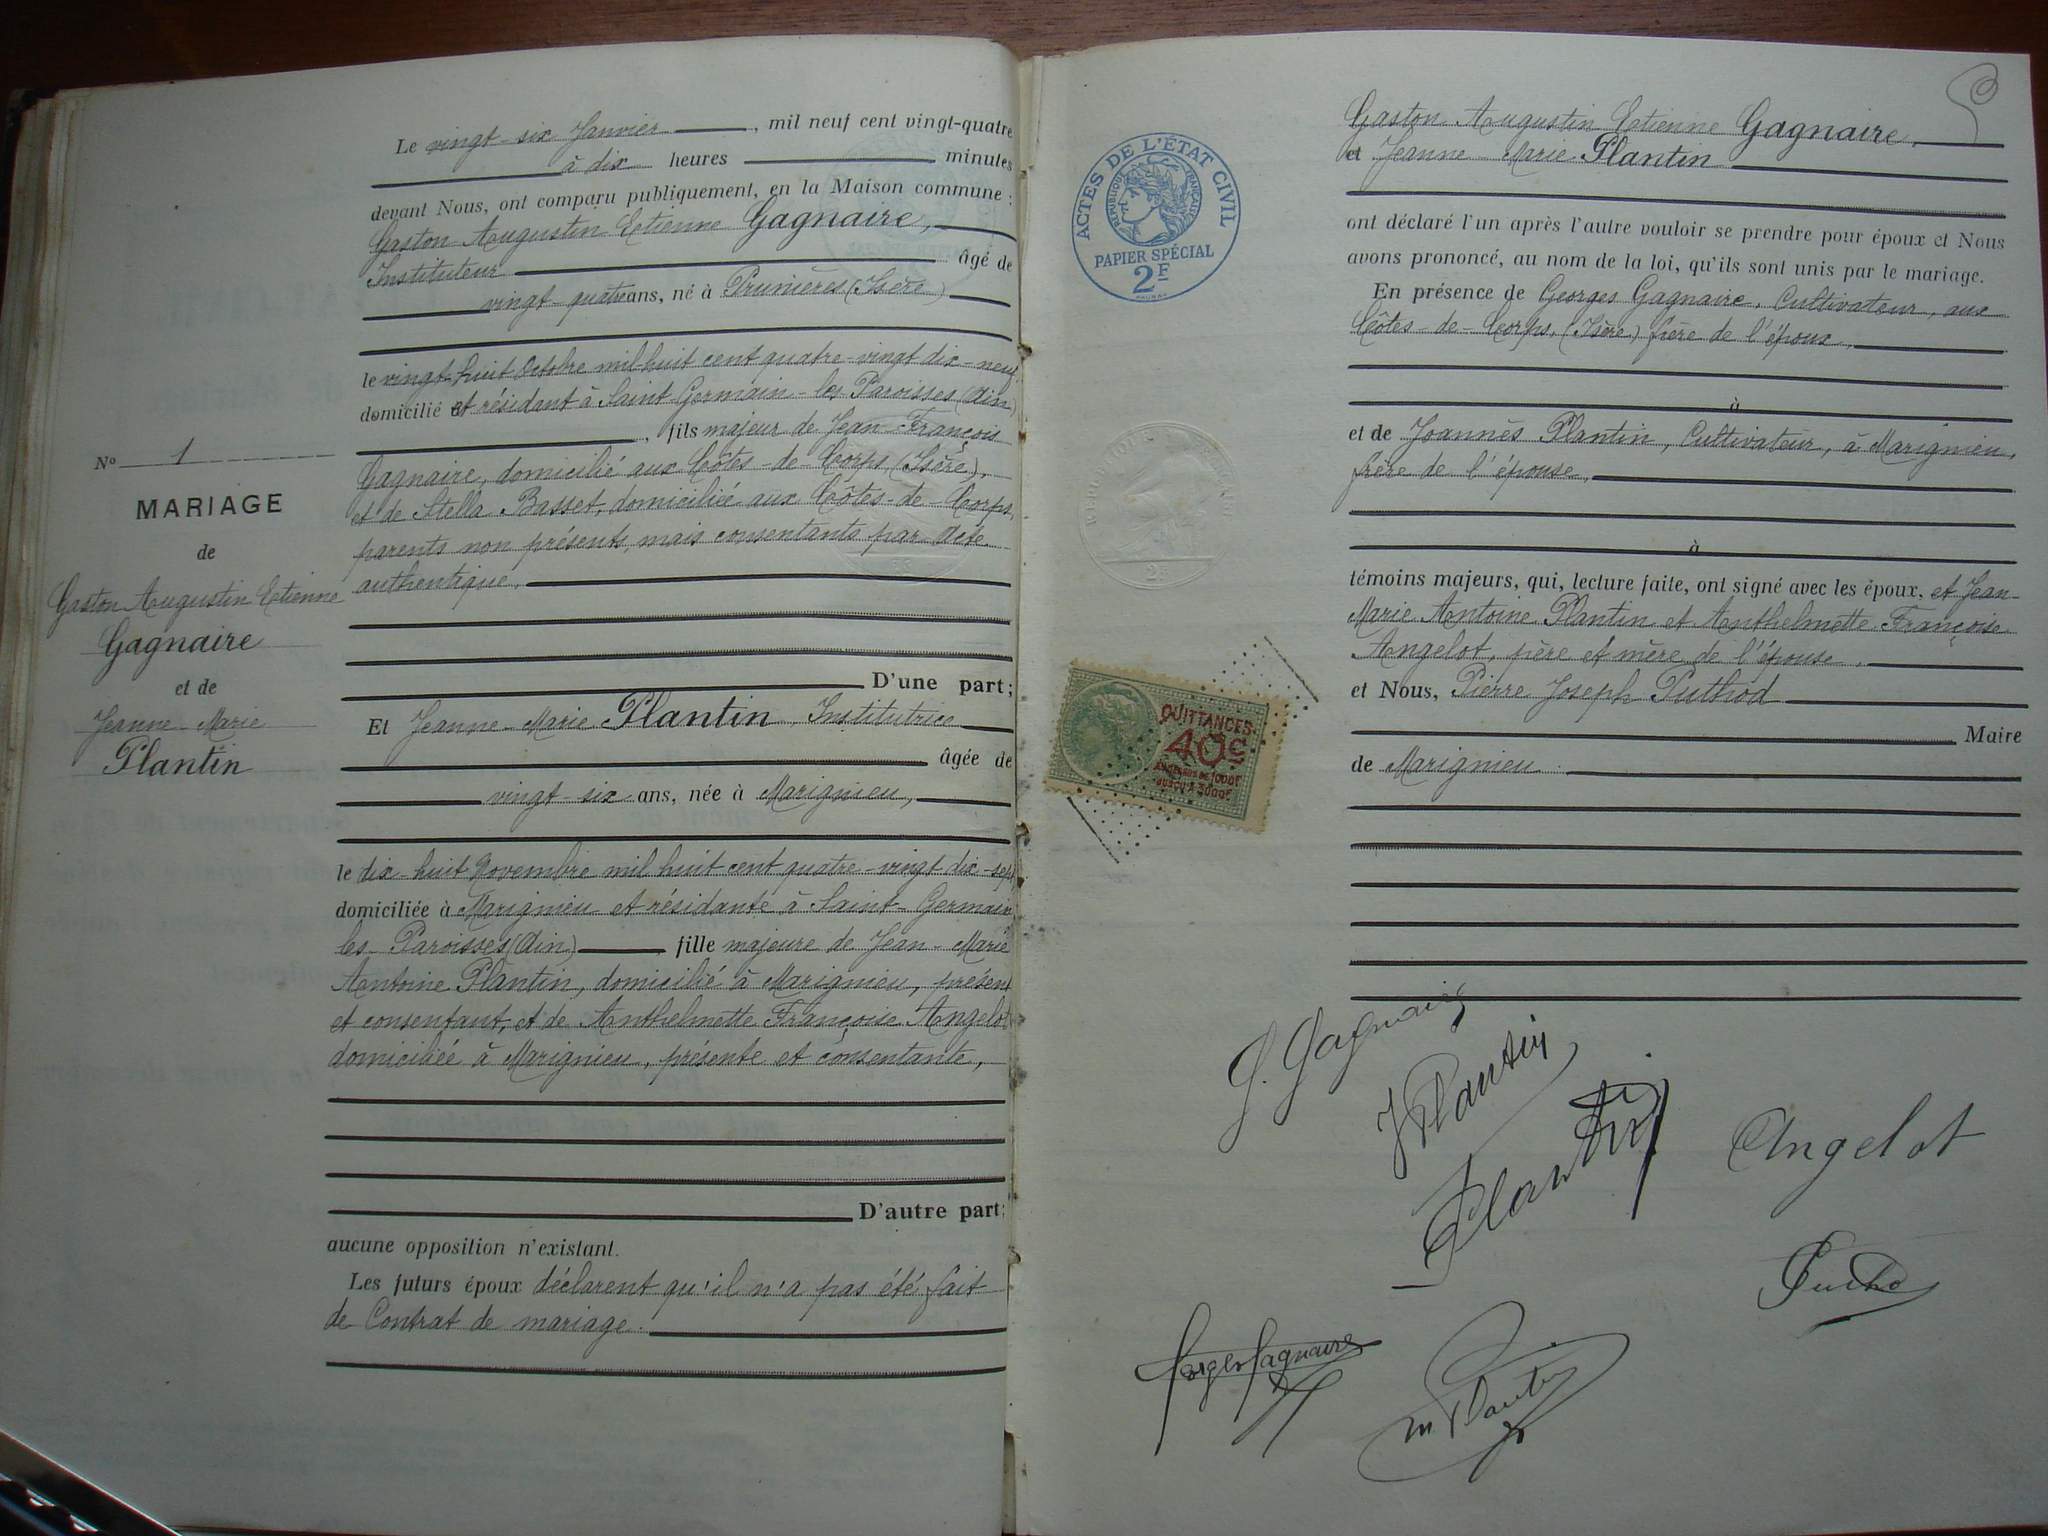 Le vingt six Janvier, mil neuf cent vingt-quatre
à dix heures minutes
devant Nous, ont comparu publiquement, en la Maison commune :
Gaston Augustin Etienne Gagnaire,
Instituteur âgé de
vingt-quatre ans, né à Prunières (Isère)
le vingt-huit Octobre mil huit cent quatre-vingt dix-neuf
domicilié et résidant à Saint-Germain-les Paroisses (Ain)
, fils majeur de Jean-François
Gagnaire, domicilié aux Côtes-de-Corps (Isère),
et de Stella Basset, domiciliée aux Côtes-de-Corps,
parents non présents, mais consentants par acte
authentique.
D'une part;
Et Jeanne-Marie Plantin, Institutrice
âgée de
vingt-six ans, née à Marignieu,
le dix-huit Novembre mil huit cent quatre-vingt dix-sept
domiciliée à Marignieu et résidante à Saint-Germain
les Paroisses (Ain) fille majeure de Jean-Marie
Antoine Plantin, domicilié à Marignieu, présent
et consentant, et de Anthelmette Françoise Angelot
domiciliée à Marignieu, présente et consentante,
D'autre part;
aucune opposition n'existant.
Les futurs époux déclarent qu'il n'a pas été fait
de Contrat de mariage.
No 1
MARIAGE
de
Gaston Augustin Etienne
Gagnaire
et de
Jeanne-Marie
Plantin
ACTES DE L'ÉTAT CIVIL
RÉPUBLIQUE FRANÇAISE
PAPIER SPÉCIAL
2F
2F
QUITTANCES
40c
AU-DESSUS DE 1000F
JUSQU'À 3000F
Gaston Augustin Etienne Gagnaire,
et Jeanne-Marie Plantin
ont déclaré l'un après l'autre vouloir se prendre pour époux et Nous
avons prononcé, au nom de la loi, qu'ils sont unis par le mariage.
En présence de Georges Gagnaire, Cultivateur, aux
Côtes-de-Corps, (Isère) frère de l'époux,
à
et de Joannès Plantin, Cultivateur, à Marignieu,
frère de l'épouse,
à
témoins majeurs, qui, lecture faite, ont signé avec les époux, et Jean-
Marie Antoine Plantin et Anthelmette Françoise
Angelot, père et mère de l'épouse,
et Nous, Pierre Joseph Puthod
Maire
de Marignieu.
G. Gagnaire
J Plantin
Plantin
Angelot
Georges Gagnaire
Plantin